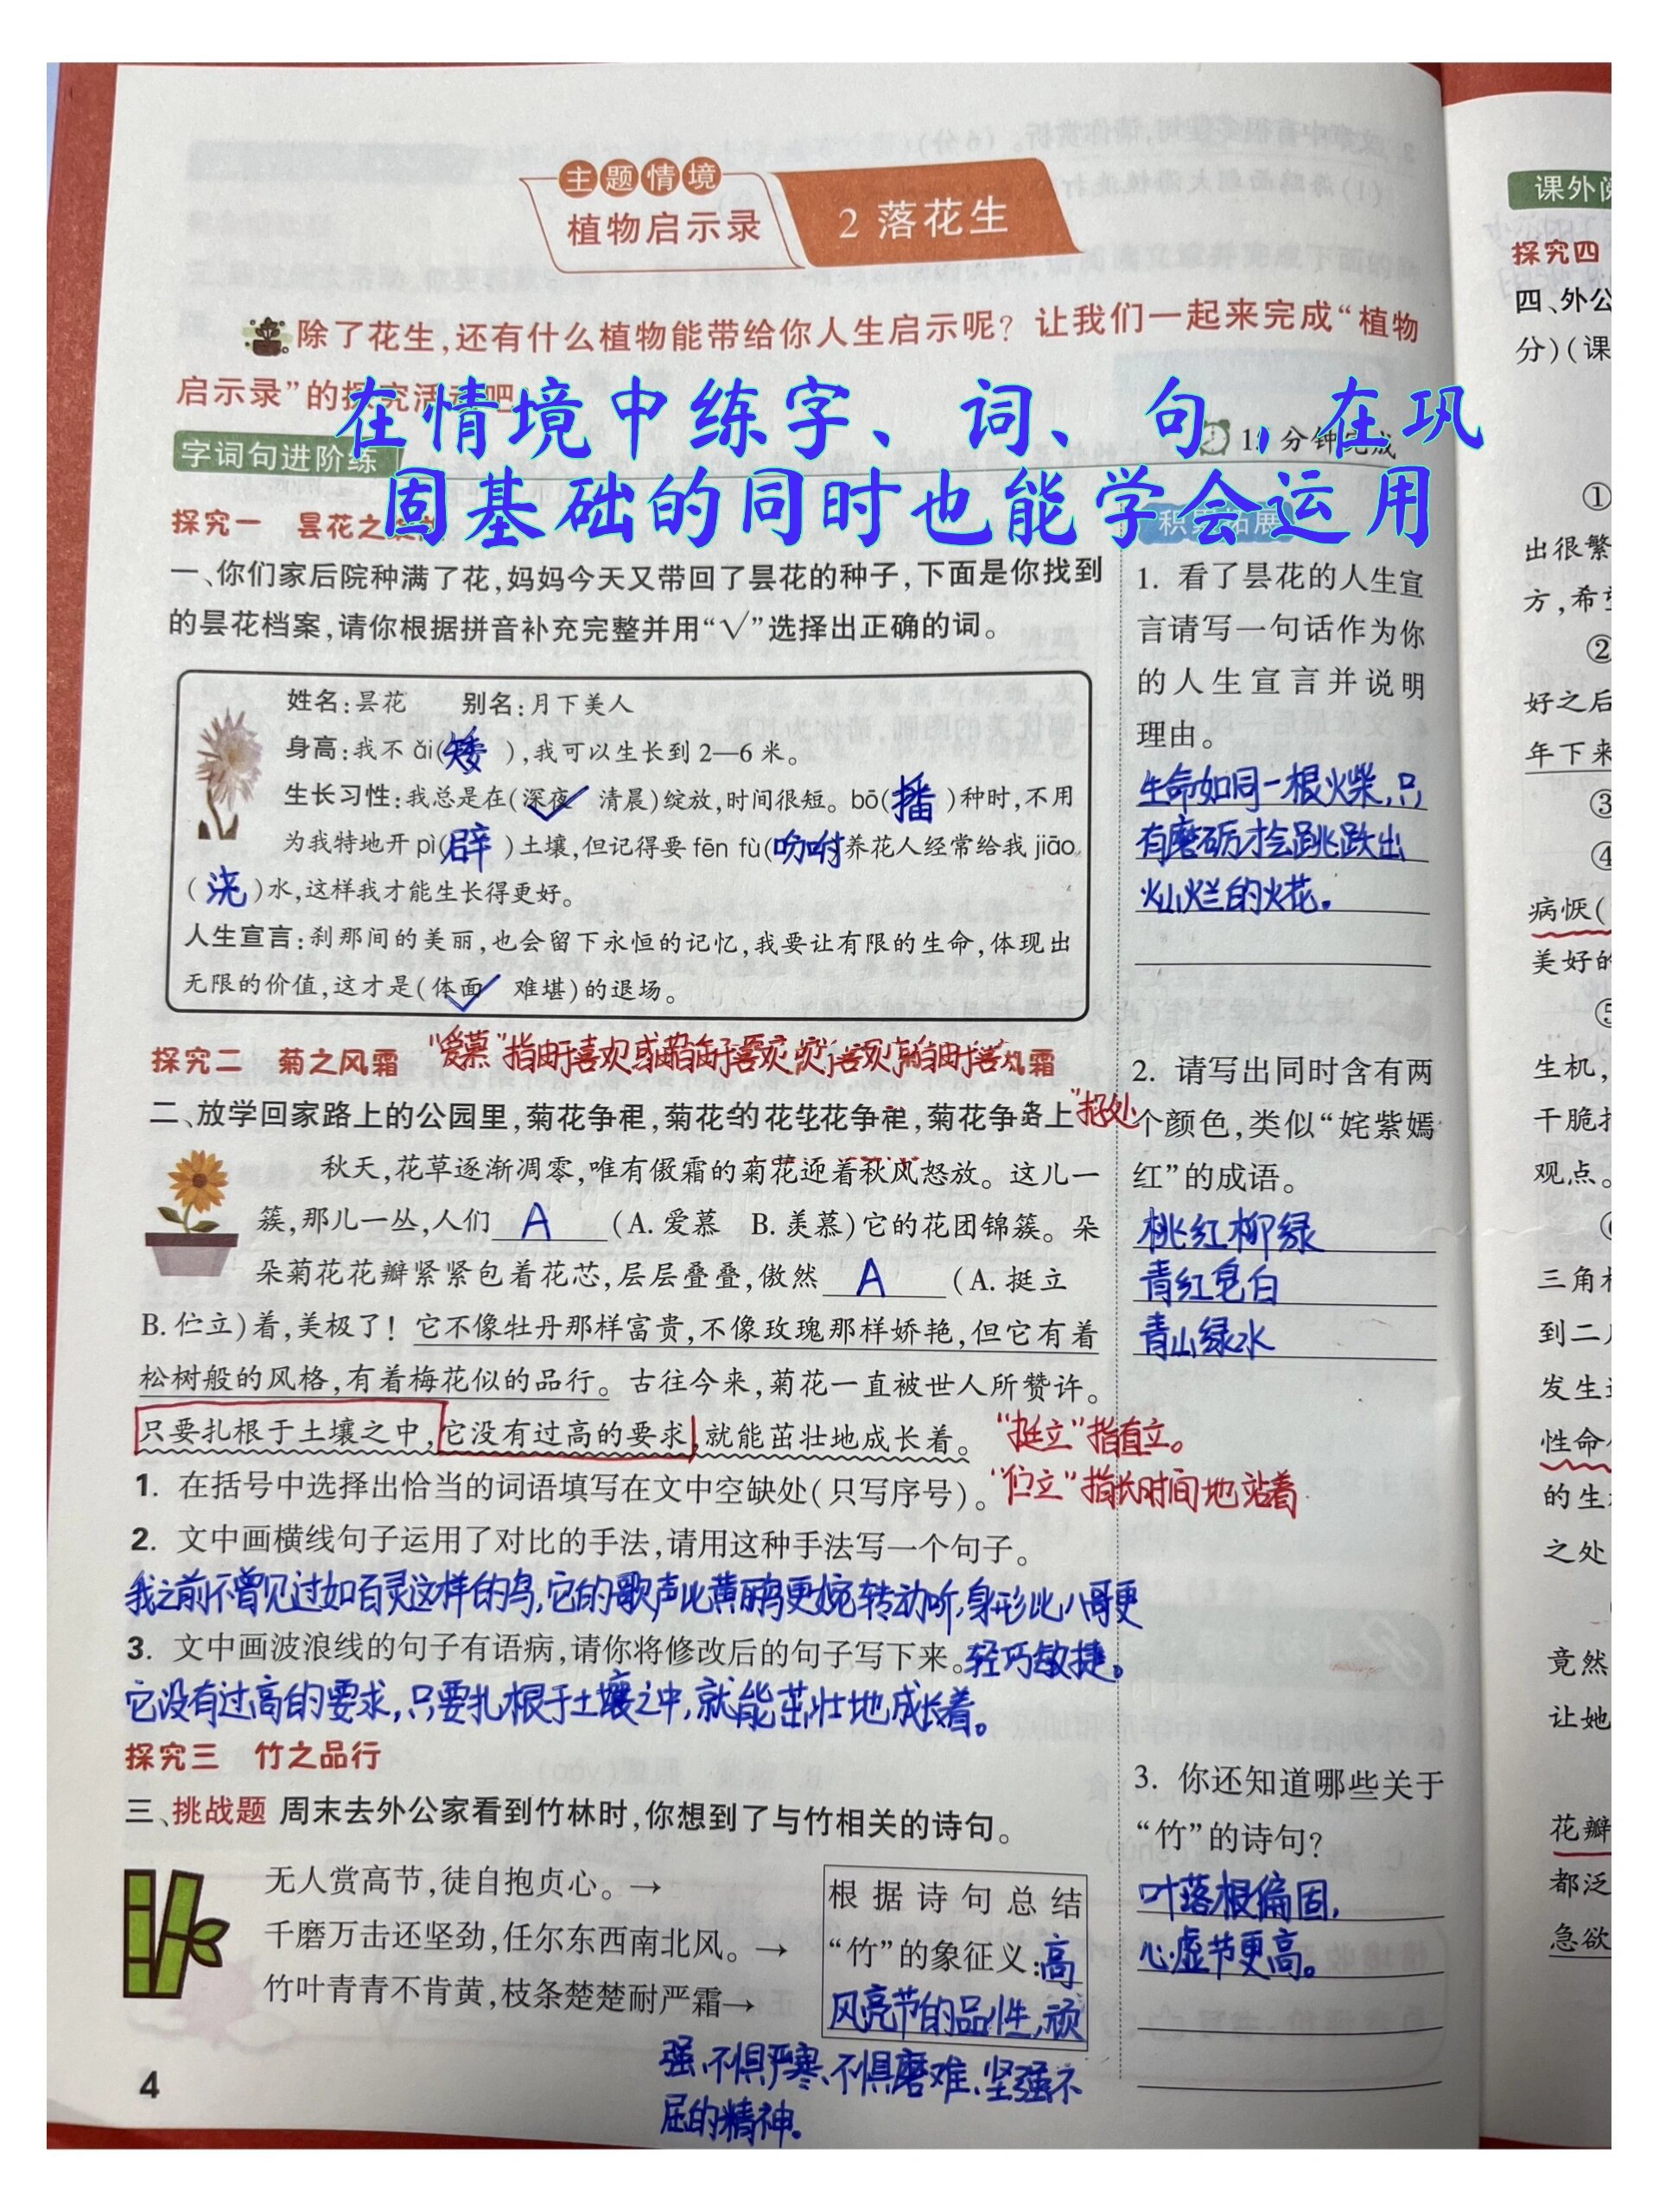 主题情境
植物启示录
2 落花生
除了花生,还有什么植物能带给你人生启示呢?让我们一起来完成“植物
启示录”的探究活动吧
在情境中练字、词、句,在巩
固基础的同时也能学会运用
字词句进阶练
分钟完成
探究一 昙花之
一、你们家后院种满了花,妈妈今天又带回了昙花的种子,下面是你找到
的昙花档案,请你根据拼音补充完整并用“√”选择出正确的词。
姓名:昙花 别名:月下美人
身高:我不ǎi(矮),我可以生长到2—6米。
生长习性:我总是在(深夜✓ 清晨)绽放,时间很短。bō(播)种时,不用
为我特地开pì(辟)土壤,但记得要fēn fù(吩咐养花人经常给我jiāo
(浇)水,这样我才能生长得更好。
人生宣言:刹那间的美丽,也会留下永恒的记忆,我要让有限的生命,体现出
无限的价值,这才是(体面✓ 难堪)的退场。
探究二 菊之风霜
“爱慕”指由于喜欢
二、放学回家路上的公园里,菊花争
秋天,花草逐渐凋零,唯有傲霜的菊花迎着秋风怒放。这儿一
簇,那儿一丛,人们A(A. 爱慕 B. 羡慕)它的花团锦簇。朵
朵菊花花瓣紧紧包着花芯,层层叠叠,傲然A(A. 挺立
B. 伫立)着,美极了!它不像牡丹那样富贵,不像玫瑰那样娇艳,但它有着
松树般的风格,有着梅花似的品行。古往今来,菊花一直被世人所赞许。
只要扎根于土壤之中,它没有过高的要求,就能茁壮地成长着。
“挺立”指直立。
1. 在括号中选择出恰当的词语填写在文中空缺处(只写序号)。
“伫立”指长时间地站着
2. 文中画横线句子运用了对比的手法,请用这种手法写一个句子。
我之前不曾见过如百灵这样的鸟,它的歌声比黄鹂鸟更婉转动听,身形比八哥更
3. 文中画波浪线的句子有语病,请你将修改后的句子写下来。轻巧敏捷。
它没有过高的要求,只要扎根于土壤之中,就能茁壮地成长着。
探究三 竹之品行
三、挑战题 周末去外公家看到竹林时,你想到了与竹相关的诗句。
无人赏高节,徒自抱贞心。→
千磨万击还坚劲,任尔东西南北风。→
竹叶青青不肯黄,枝条楚楚耐严霜→
根据诗句总结
“竹”的象征义:高
风亮节的品性,顽
强、不惧严寒、不惧磨难、坚强不
屈的精神。
4
积累拓展
1. 看了昙花的人生宣
言请写一句话作为你
的人生宣言并说明
理由。
生命如同一根火柴,只
有磨砺才会跳跌出
灿烂的火花。
2. 请写出同时含有两
个颜色,类似“姹紫嫣
红”的成语。
桃红柳绿
青红皂白
青山绿水
3. 你还知道哪些关于
“竹”的诗句?
叶落根偏固,
心虚节更高。
课外阅
探究四
四、外公
分)(课
①
出很繁
方,希望
②
好之后
年下来
③
④
病恹(
美好的
⑤
生机,
干脆把
观点。
三角梅
到二
发生
性命
的生
之处
竟然
让她
花瓣
都泛
急欲